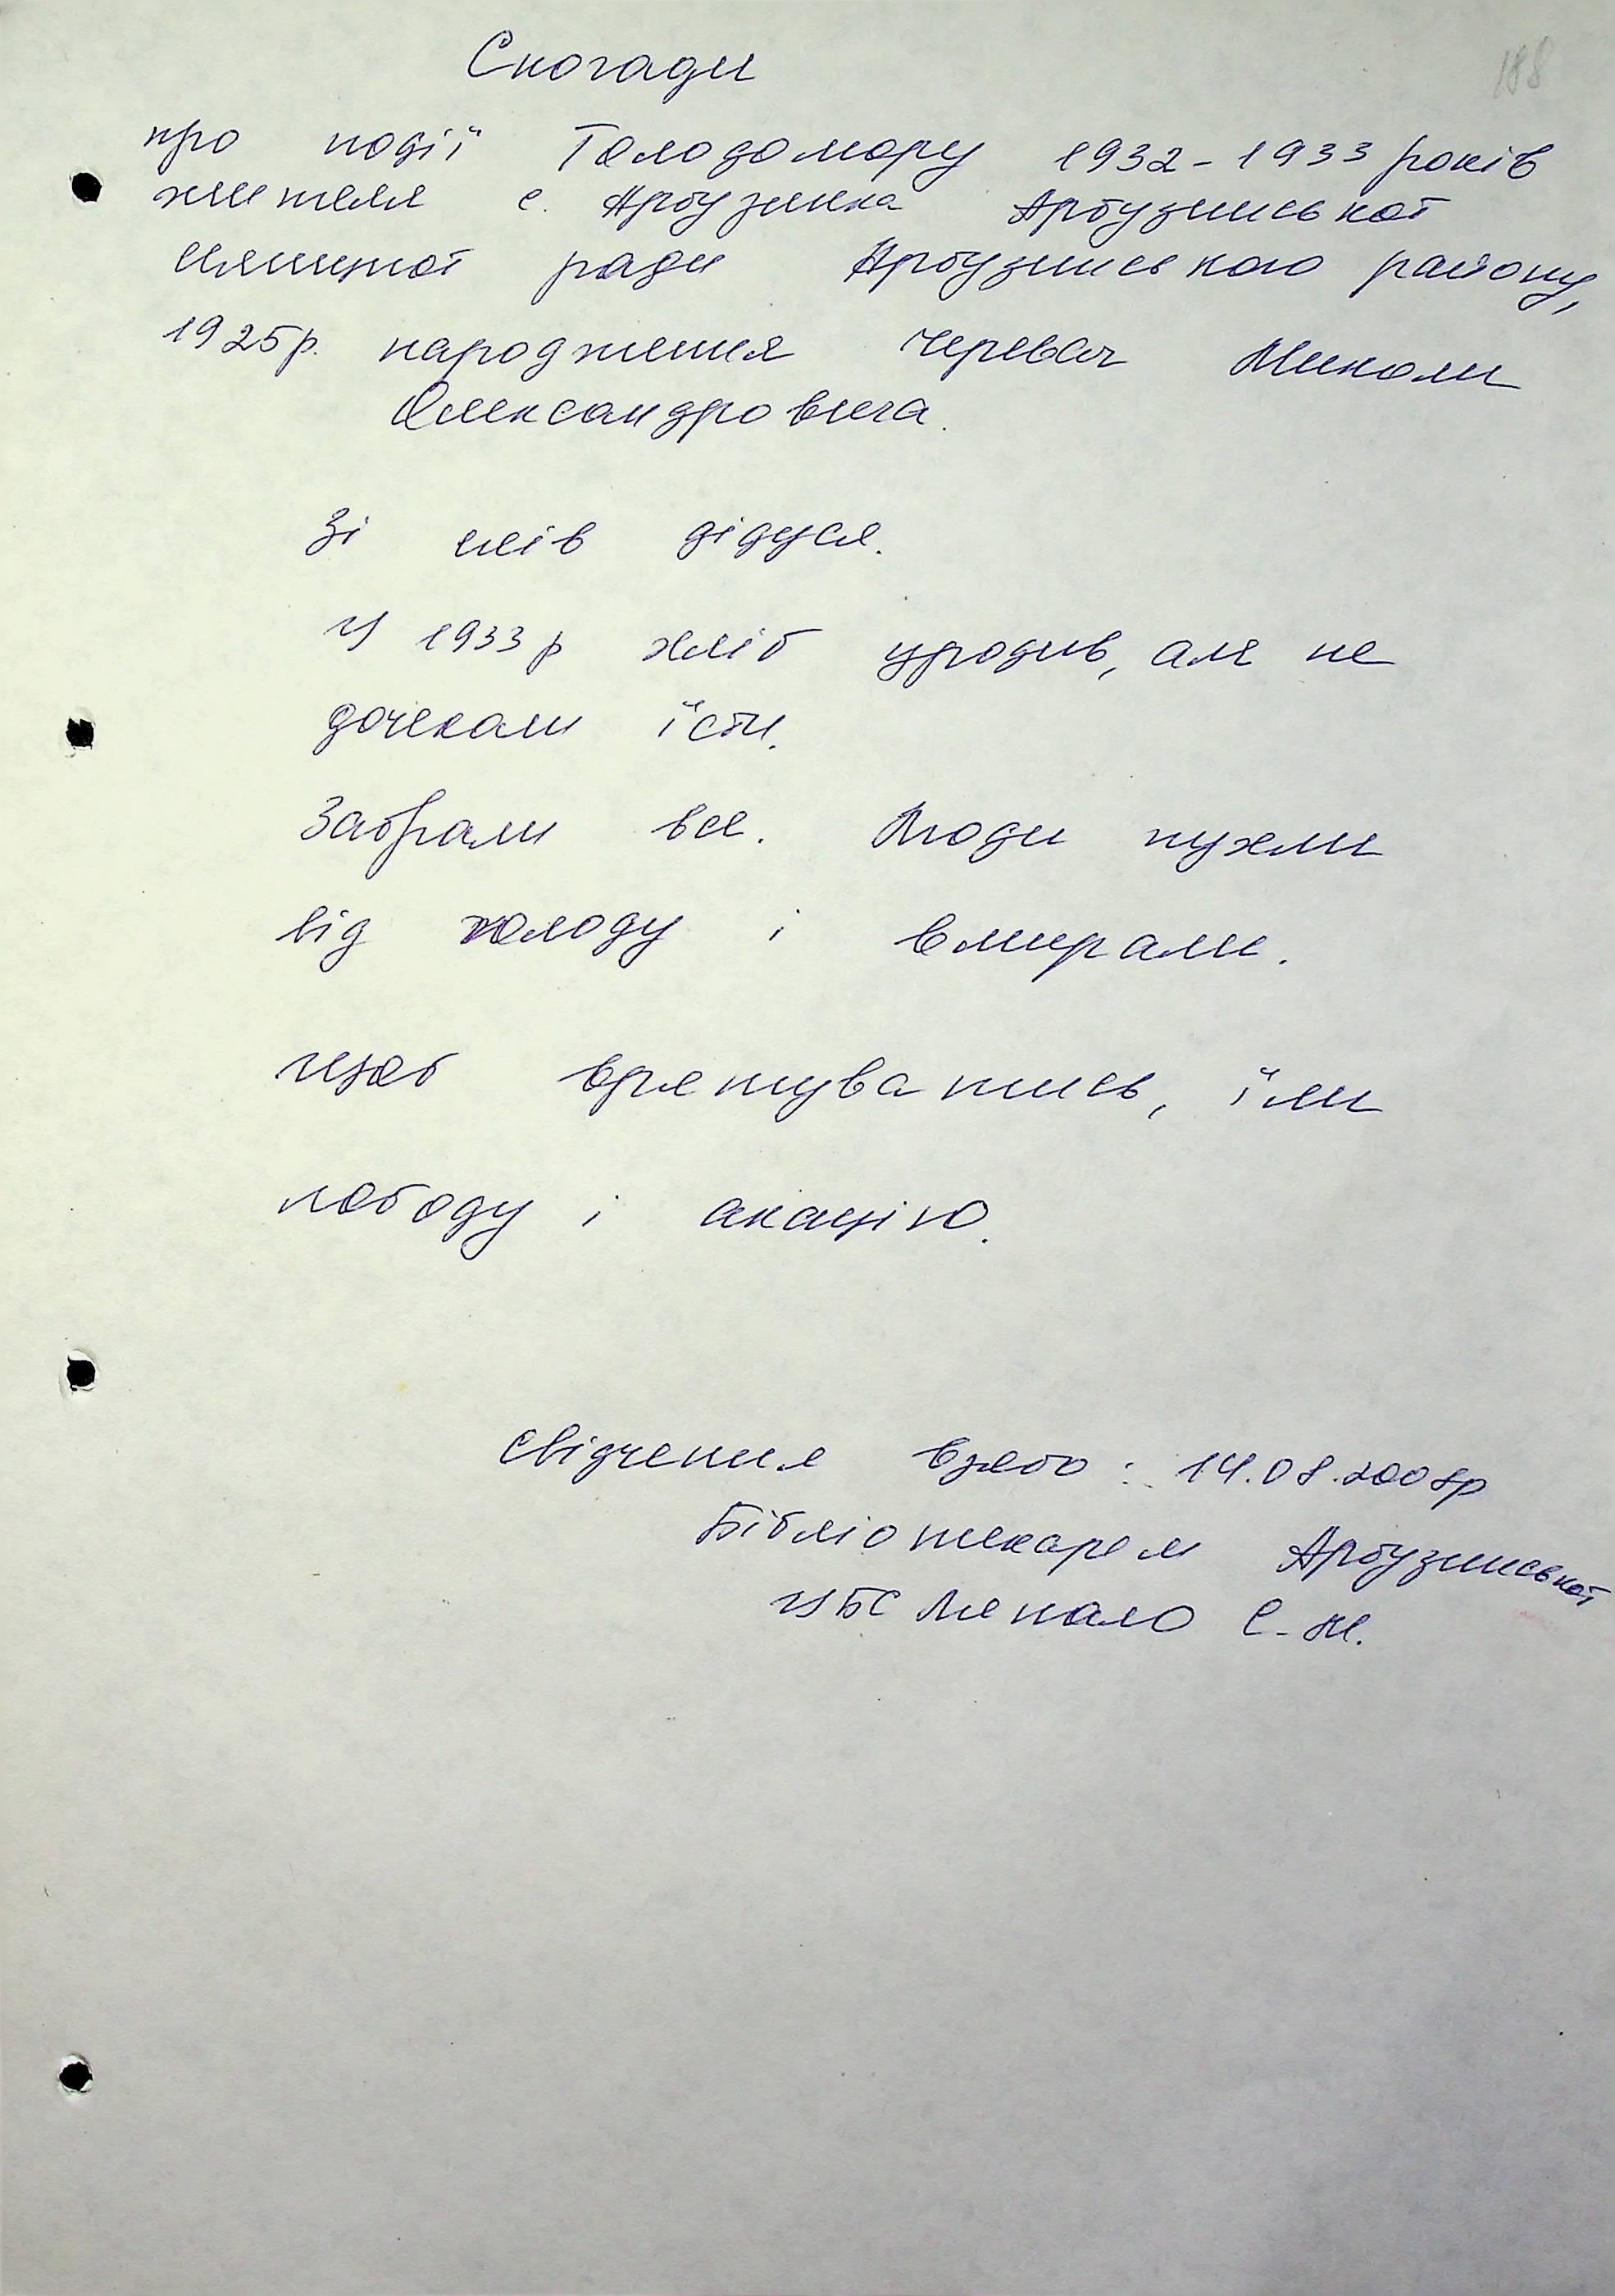 Спогади
188
про події Голодомору 1932-1933 років
жителя с. Арбузинка Арбузинської
селищної ради Арбузинського району,
1925р. народження Черевач Миколи
Олександровича.
Зі слів дідуся.
У 1933р хліб уродив, але не
дочекали їсти.
Забрали все. Люди пухли
від холоду і вмирали.
щоб врятуватись, їли
лободу і акацію.
Свідчення взято: 14.08.2008р
Бібліотекарем Арбузинської
ЦБС